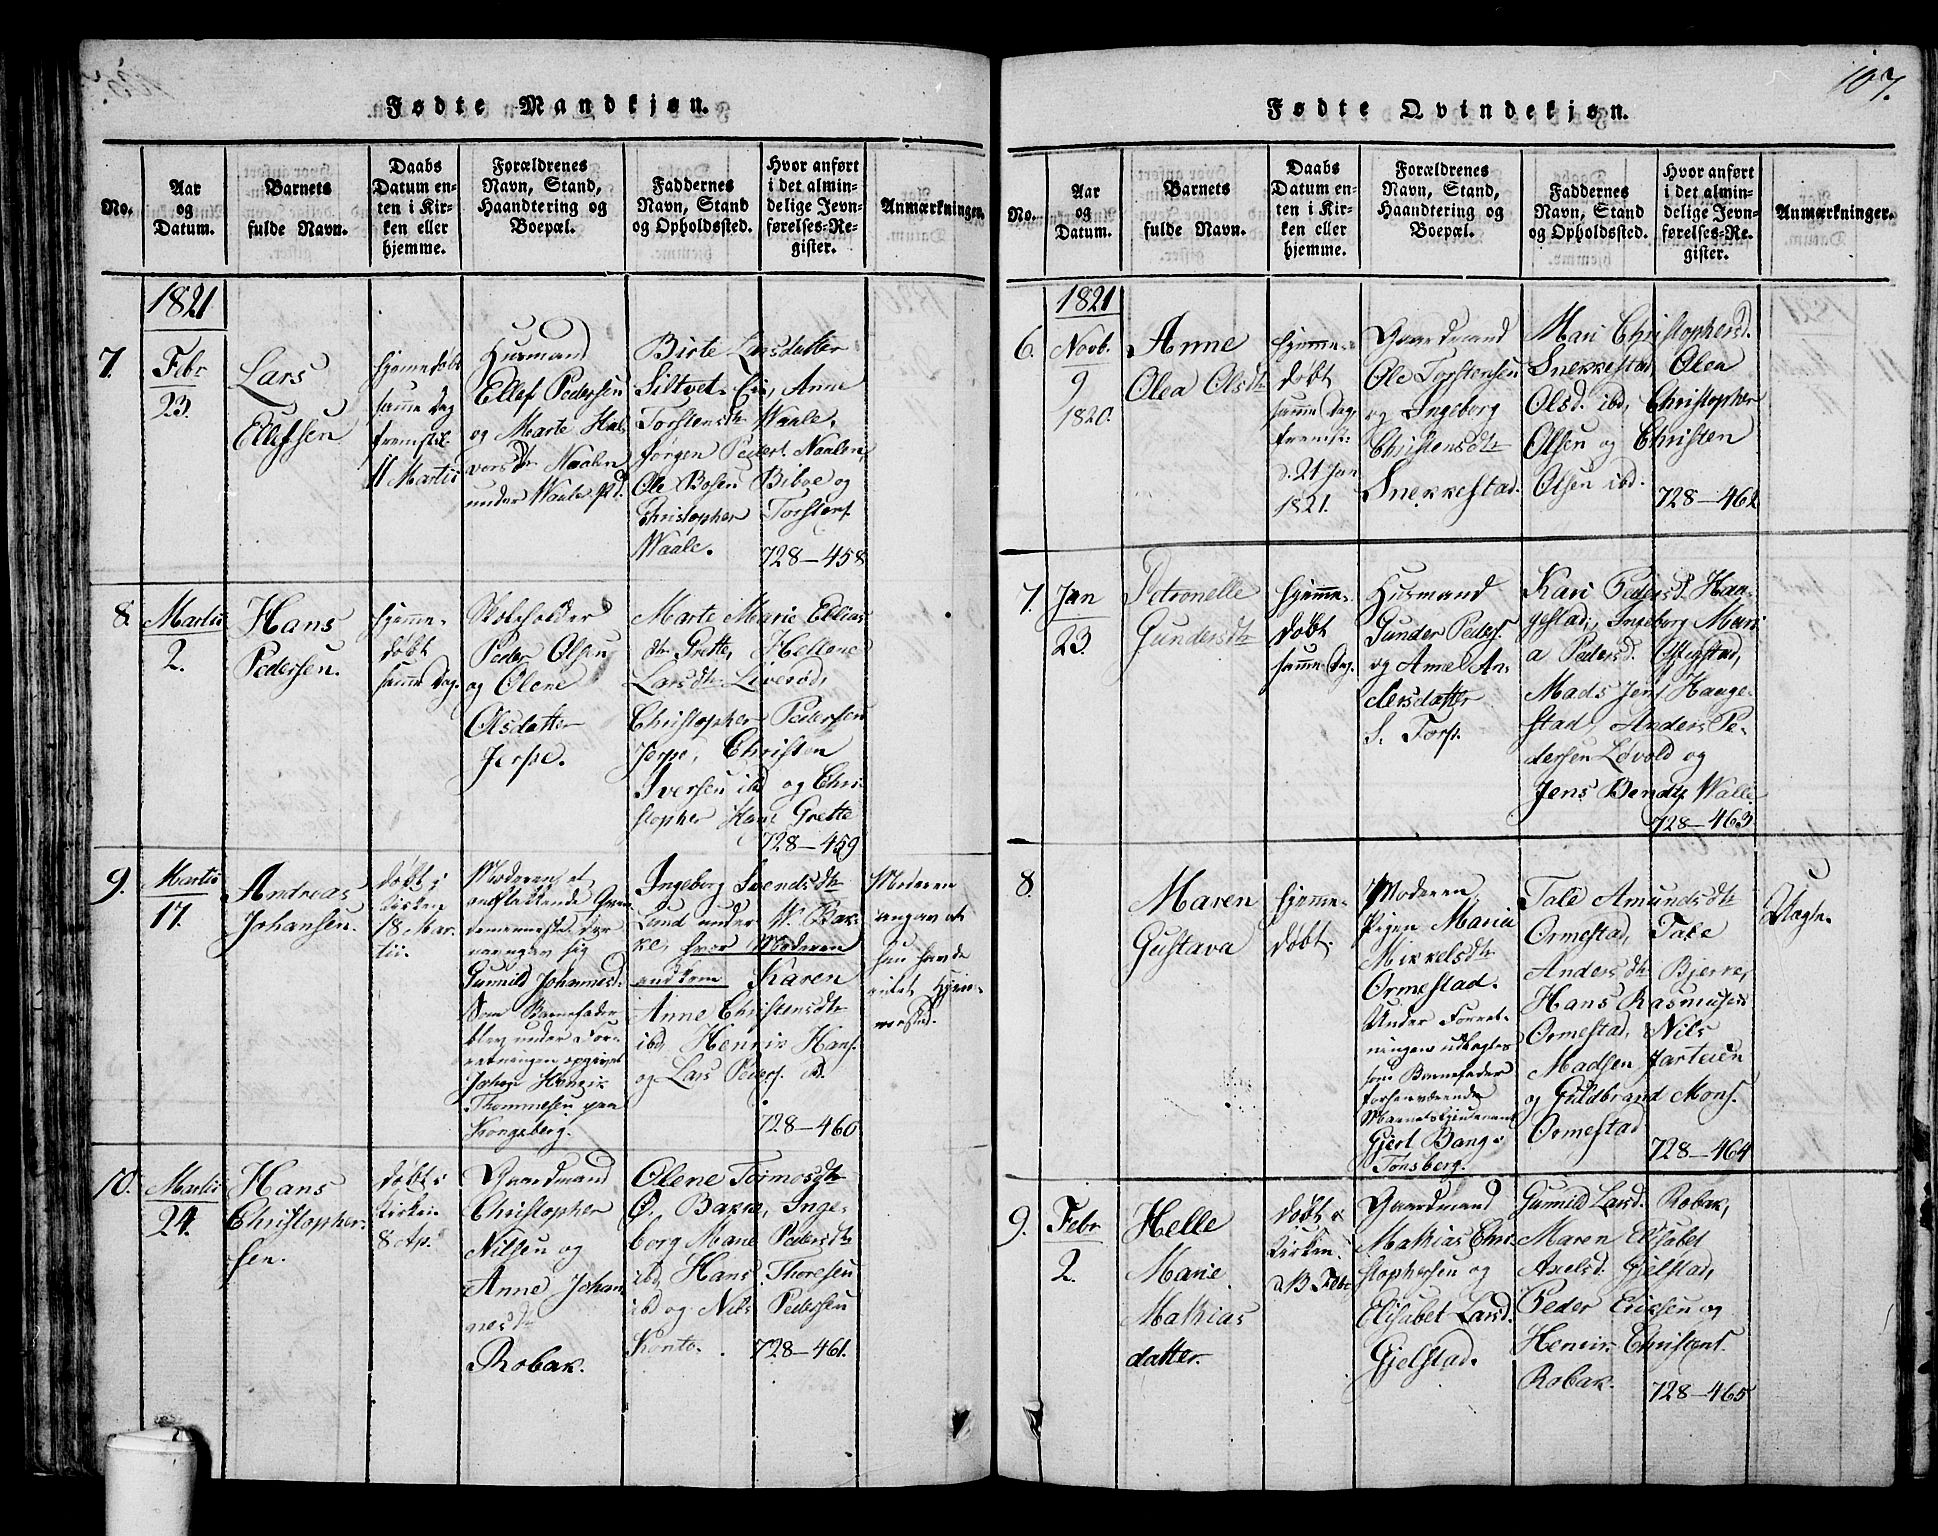 107.
Fødte Mandkjøn.
No.
Aar
og
Datum.
Barnets
fulde Navn.
Daabs
Datum en-
ten i Kir-
ken eller
hjemme.
Forældrenes
Navn, Stand,
Haandtering og
Boepæl.
Faddernes
Navn, Stand
og Opholdssted.
Hvor anført
i det almin-
delige Jevn-
førelses-Re-
gister.
Anmærkninger.
1821
7.
Febr
23.
Lars
Ellefsen
hjemedøbt
samme Dag
fremstil
11 Martii
Husmand
Ellef Pedersen
og Marte Hal
vorsdtr Naalen
under Waale Pd.
Birte Larsdatter
Siltvet. Anne
Torstensdtr Waale,
Jørgen Peders. Naalen,
Ole Bosen Biboe og
Christopher Torstens.
Waale.
728-458
8.
Martii
2.
Hans
Pedersen.
hjemme-
døbt
samme Dag.
Skoleholder
Peder Olsen
og Olene
Olsdatter
Jerpe.
Marte Marie Ellias
dtr Grette, Hellene
Larsdtr Liverød,
Christopher Pedersen
Jerpe, Christen
Iversen ibd og Chri-
stopher Hans. Grette
728-459
9.
Martii
17.
Andreas
Johansen.
døbt i
Kirken
18 Mar-
tii.
Moderen et
omflakkende Qvin
demenneske der
nangav sig
Gunild Johannesd.
Som Barnefader
blev under For-
retningen opgivet
Johan Henrik
Thommesen paa
Kongsberg.
Ingeborg Svendsdtr
Lund under W. Bak-
ke, hvor Moderen
ankom Karen
Anne Christensdtr
ibd, Henrik Hans.
og Lars Peders. ibd.
728-460
Moderen
angav at
hun havde
intet Hjem-
mersted.
10.
Martii
24.
Hans
Christopher-
sen.
døbt i
Kirken
8 Ap.
Gaardmand
Christopher
Nilsen og
Anne Johan
nesd.
Robak.
Olene Tormosdtr
Ø. Bakke, Inge-
borg Marie Pedersdtr
ibd, Hans Thoresen
ibd og Nils Pedersen
728-461.
Fødte Qvindekjøn.
No.
Aar
og
Datum.
Barnets
fulde Navn.
Daabs
Datum en-
ten i Kir-
ken eller
hjemme.
Forældrenes
Navn, Stand,
Haandtering og
Boepæl.
Faddernes
Navn, Stand
og Opholdssted.
Hvor anført
i det almin-
delige Jevn-
førelses-Re-
gister.
Anmærkninger.
1821
6.
Novb.
9
1820.
Anne
Olea Olsdtr
hjemme-
døbt
samme Dag,
fremst:
d. 21 Jan
1821.
Gaardmand
Ole Torstensen
og Ingeborg
Christensdtr
Snekkestad.
Mari Christophersd.
Snekkestad, Olea
Olsd. ibd, Christopher
Olsen og Christen
Olsen ibd.
728-462
7.
Jan
23.
Petronelle
Gundersdtr
hjemme-
døbt
samme Dag.
Husmand
Gunder Peders.
og Amel An-
dersdatter
S. Torp.
Kari Pedersd. Haa-
gestad, Ingeborg Mari
a Pedersd.
Mads Jens. Haage-
stad, Anders Pe-
dersen Løvold og
Jens Bendtz. Walle
728-463
8.
Maren
Gustava
hjemme-
døbt.
Moderen,
Pigen Maria
Mikkelsdtr
Ormestad.
Under Forret-
ningen udlagtes
som Barnefader
forhenværende
Gjert Bang i
Tønsberg.
Tale Amundsdtr
Ormestad, Tale
Andersdtr Bjerke,
Hans Rasmusen
Ormestad, Nils
Madsen Jarteien
og Guldbrand Mons.
Ormestad
728-464
Uægte.
9.
Febr
2.
Helle
Marie
Mathias
datter.
døbt i
Kirken
Gaardmand
Mathias Chri-
stophersen og
Elisabet Larsd.
Gjelstad.
Gunild Larsd. Robak,
Maren Elisabet
Axelsd. Gjelstad,
Peder Ericsen og
Henrik Christens.
Robak.
728-465